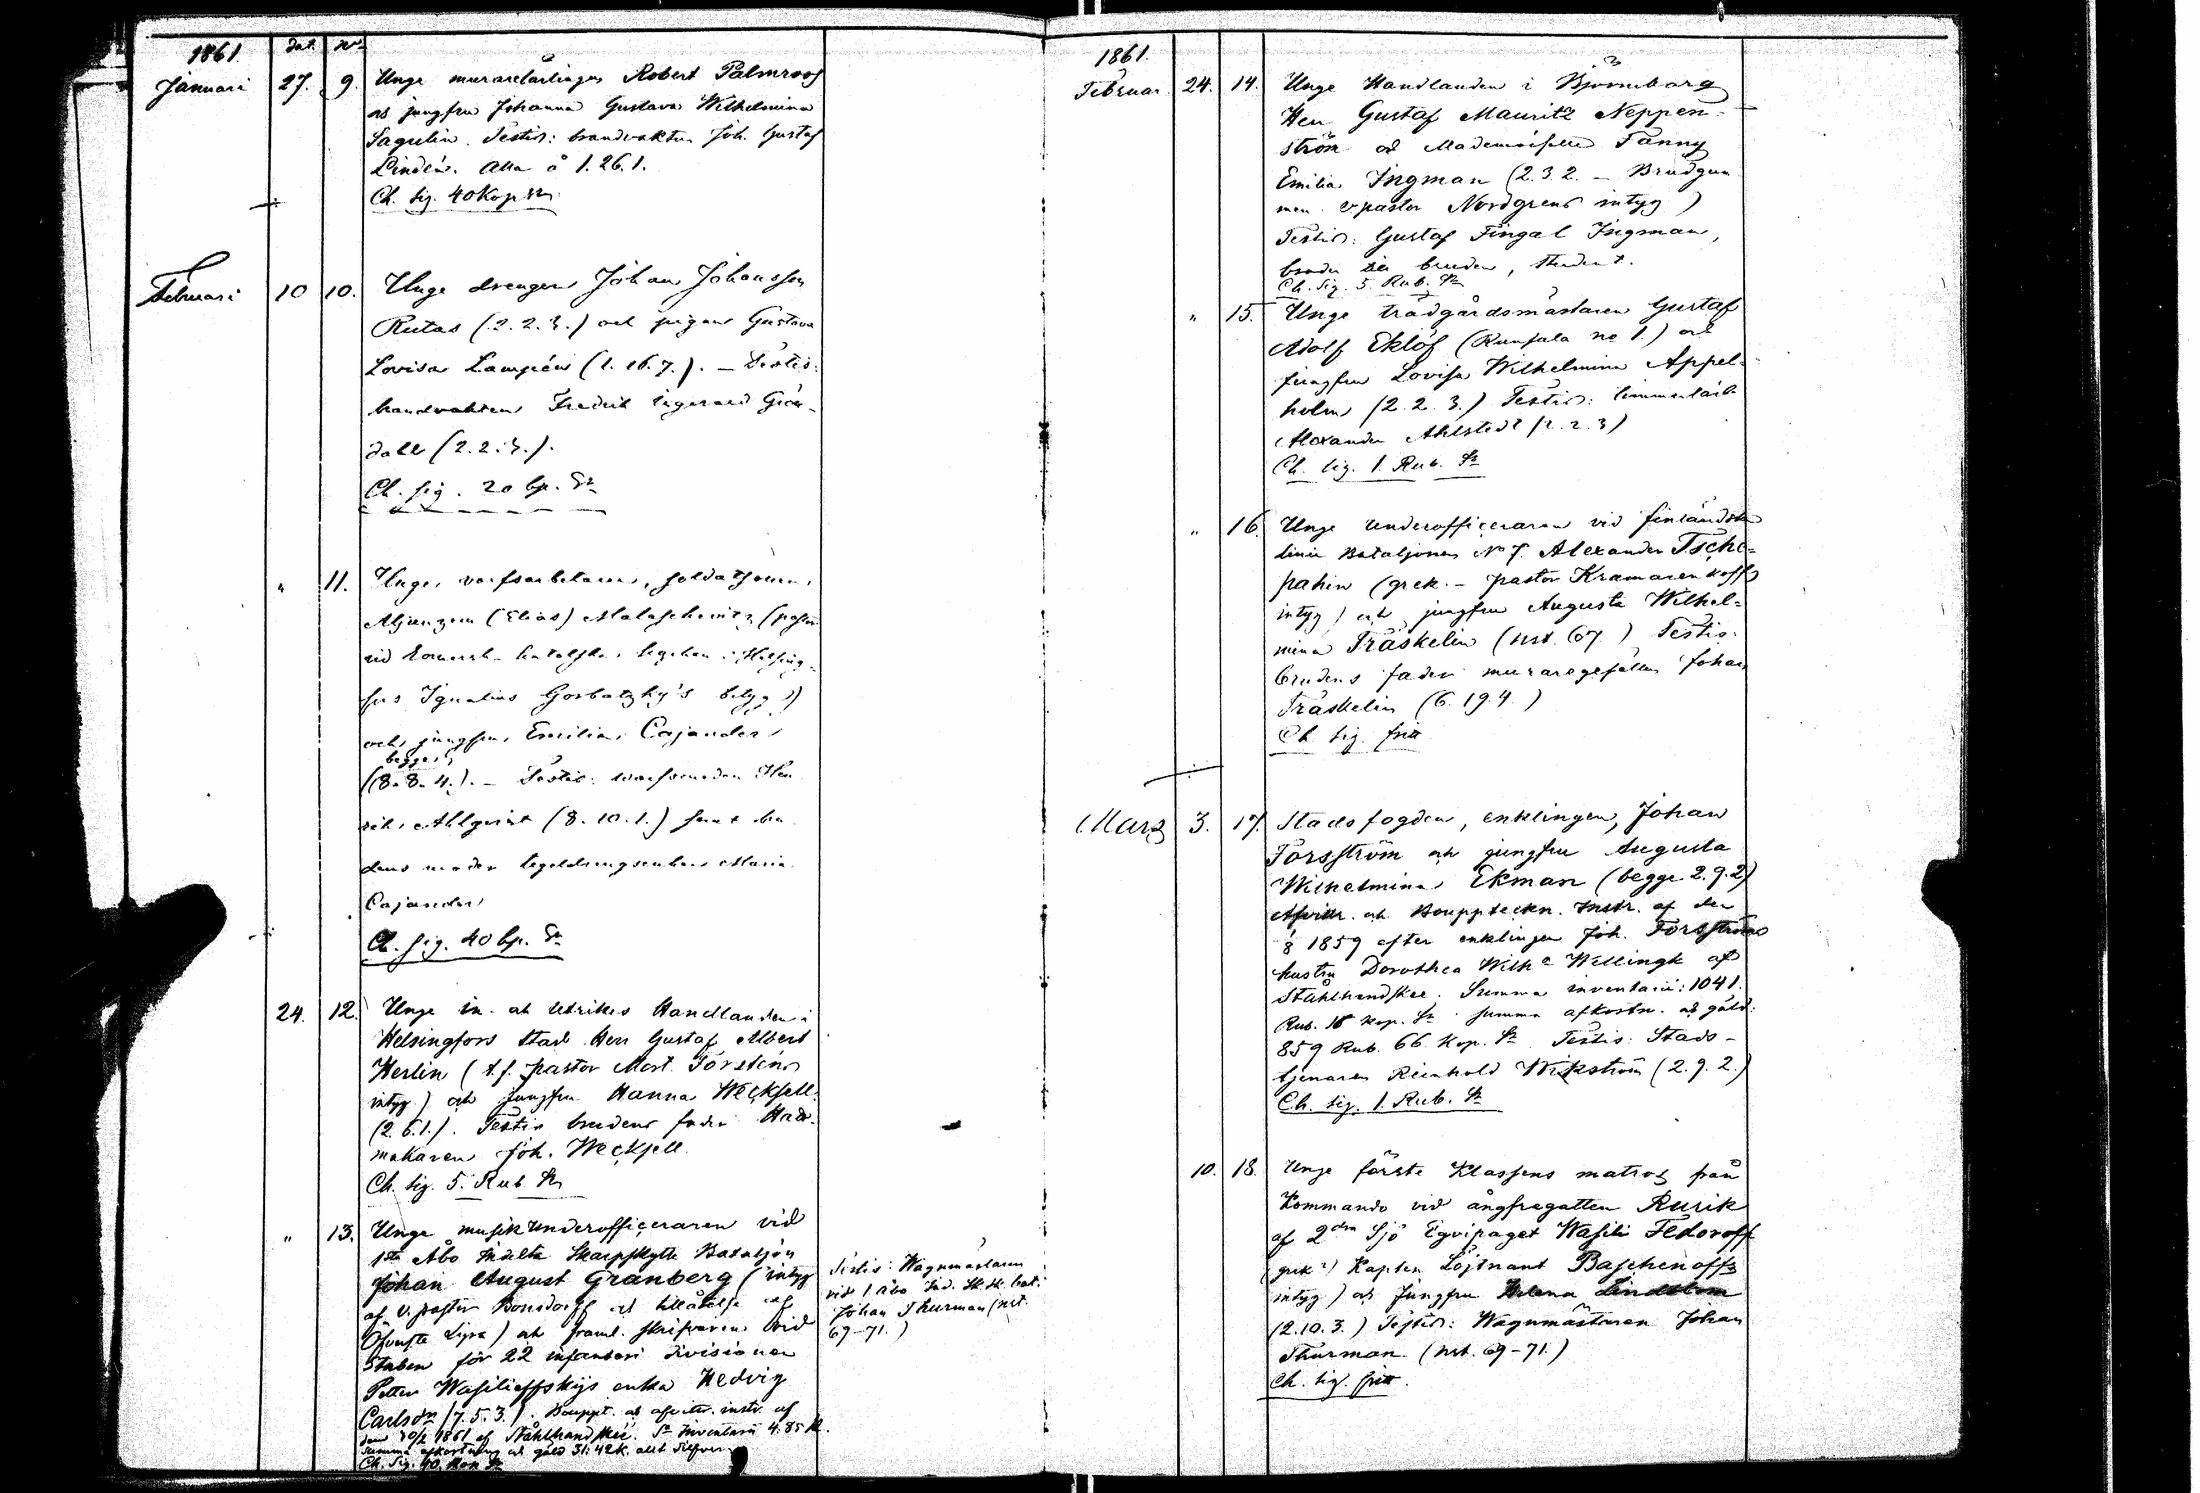 1861. dat. No
Januari 27. 9. Unge murarelärlingen Robert Palmroos
och jungfru Johanna Gustava Wilhelmina
Sagulin. Testis: brandvakten Joh. Gustaf
Lindén. Alla å 1.26.1.
Ch. sig. 40 Kop Sr
Februari 10 10. Unge drengen Johan Johansson
Rutas (2.2.3.) och pigan Gustava
Lovisa Lampén (1.16.7.). – Testis:
brandvakten Fredrik
dahl (2.2.3.).
Ch. sig. 20 kp. Sr
" 11. Unge varfsarbetaren, soldatsonen,
(Elias) Malaschewitz (pastor
vid Romersk-katolska kyrkan i Helsing-
fors Ignatius Gorbatzky's betyg)
och jungfru Emilia Cajander
begge
(8.8.4.). – Testis:
Ahlqvist (8.10.1.) samt bru
dens moder Maria
Cajander
Ch. sig. 40 kp. Sr
24. 12. Unge in- och utrikes Handlanden i
Helsingfors stad Herr Gustaf Albert
Herlin (t.f. pastor Mort. Törsténs
intyg) och jungfru Hanna Weckjell
(2.6.1.). Testis brudens fader Hatt-
makaren Joh. Weckjell
Ch. sig. 5. Rub Sr
" 13. Unge musikunderofficeraren vid
1sta Åbo Indelta Skarpskytte Bataljon
Johan August Granberg (intyg
af v. pastor Bonsdorff och tillåtelse af
Öfverste Lyra) och framl. skrifvaren vid
Staben för 22 infanteri divisionen
Petter Wasilieffskijs enka Hedvig
Carlsdr (7.5.3.). Bouppt. och afvitr. instr. af
den 20/2 1861 af Stålhandske. Sa Inventarii 4.85 k.
Summa afkortning och gäld 31:42 k. allt Silfver.
Ch. Sig. 40. Kop Sr
Testis: Wagnmästaren
vid 1 Åbo Ind. Sk.sk. bat.
Johan Thurman (nst.
69–71.)
1861.
Februar 24. 14. Unge Handlanden i Björneborg
Herr Gustaf Mauritz Neppen-
ström och Mademoiselle Fanny
Emilia Ingman (2.3.2. – Brudgum
men v. pastor Nordgrens intyg)
Testis: Gustaf Fingal Ingman,
broder till bruden, student.
Ch. Sig. 5. Rub. Sr
" 15. Unge trädgårdsmästaren Gustaf
Adolf Eklöf (Runsala no 1.) och
jungfru Lovisa Wilhelmina Appel-
holm (2.2.3.) Testis:
Alexander Ahlstedt (2.2.3)
Ch. sig. 1. Rub. Sr
" 16. Unge underofficeraren vid finländska
linie Bataljonen No 7. Alexander Tsche-
pahin (grek. – pastor Kramarenkoffs
intyg) och jungfru Augusta Wilhel-
mina Träskelin (nst. 67.) Testis:
brudens fader muraregesällen Johan
Träskelin (6.19.4.)
Ch sig. fritt
Mars 3. 17. Stadsfogden, enklingen, Johan
Forsström och jungfru Augusta
Wilhelmina Ekman (begge 2.9.2)
Afvittr. och Bouppteckn. Instr. af den
1859 efter enklingen Joh. Forsströms
hustru Dorothea Wilha Wellingk af
Stålhandske. Summa inventarii: 1041.
Rub. 18 kop. Sr. summa afkortn. och gäld:
859 Rub. 66. Kop. Sr. Testis: Stads-
tjenaren Reinhold Wikström (2.9.2.)
Ch. sig. 1. Rub. Sr
10. 18. Unge förste Klassens matros från
Kommando vid ångfregatten Rurik
af 2dra Sjö Eqvipaget Wasili Fedoroff
(grek) Kapten Löjtnant Baschenoffs
intyg) och jungfru Helena Lindblom
(2.10.3.) Testis: Wagnmästaren Johan
Thurman (nst. 69–71.)
Ch. sig. fritt.